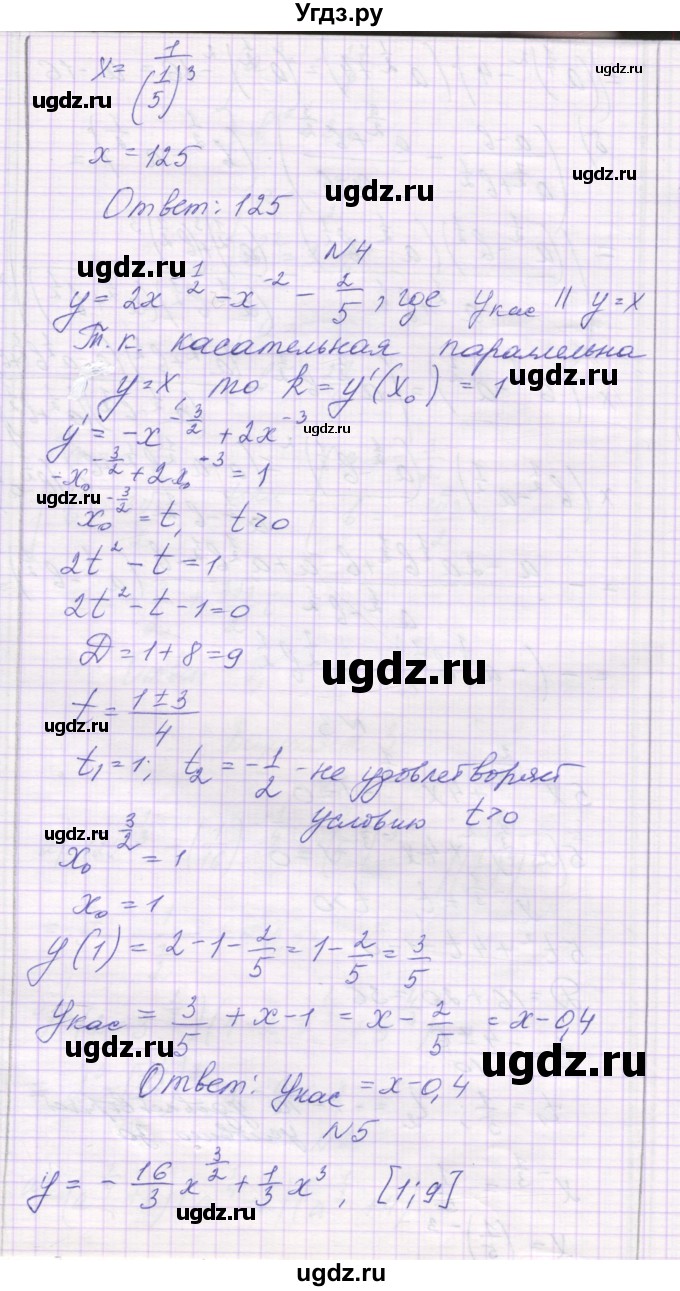 Угдз.ру
x = 1/(1/5)^3
ugdz.ru ugdz.ru
x = 125 ugdz.ru
Ответ: 125 ugdz.ru
N4
ugdz.ru
y = 2x^(-1/2) - x^(-2) - 2/5, где yкас || y = x
Т.к. касательная параллельна
y = x то k = y'(x₀) = 1 ugdz.ru
y' = -x^(-3/2) + 2x^(-3) ugdz.ru
-x₀^(-3/2) + 2x₀^(-3) = 1
ugdz.ru
x₀^(-3/2) = t, t > 0
2t² - t = 1
ugdz.ru
2t² - t - 1 = 0
D = 1 + 8 = 9
ugdz.ru
t = (1 ± 3)/4
ugdz.ru
t₁ = 1; t₂ = -1/2 - не удовлетворяет
условию t > 0
ugdz.ru
x₀^(3/2) = 1
x₀ = 1
y(1) = 2 - 1 - 2/5 = 1 - 2/5 = 3/5
yкас = 3/5 + x - 1 = x - 2/5 = x - 0,4
ugdz.ru ugdz.ru
Ответ: yкас = x - 0,4
N5
y = -16/3 x^(3/2) + 1/3 x³, [1; 9]
ugdz.ru ugdz.ru
ugdz.ru